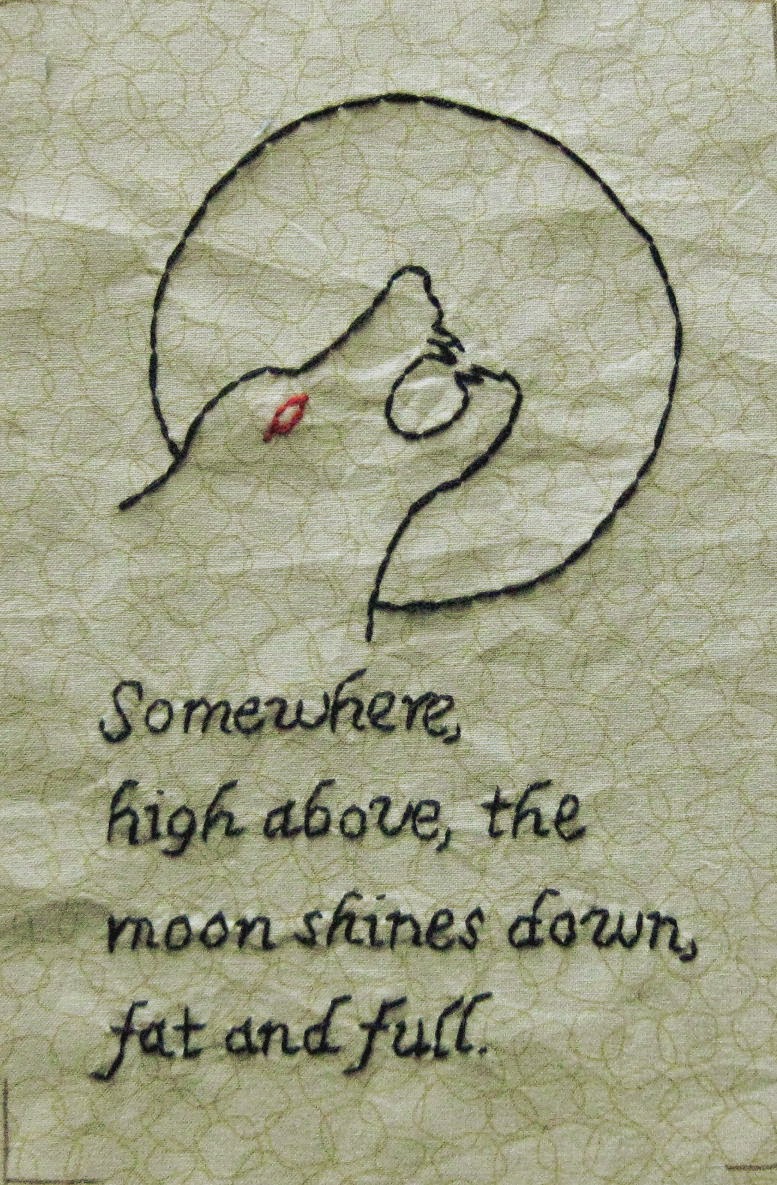 Somewhere,
high above, the
moon shines down,
fat and full.